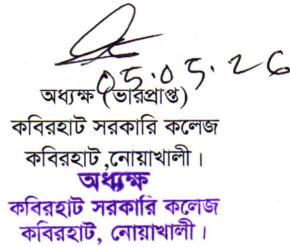 05.05.26
অধ্যক্ষ (ভারপ্রাপ্ত)
কবিরহাট সরকারি কলেজ
কবিরহাট,নোয়াখালী।
অধ্যক্ষ
কবিরহাট সরকারি কলেজ
কবিরহাট, নোয়াখালী।